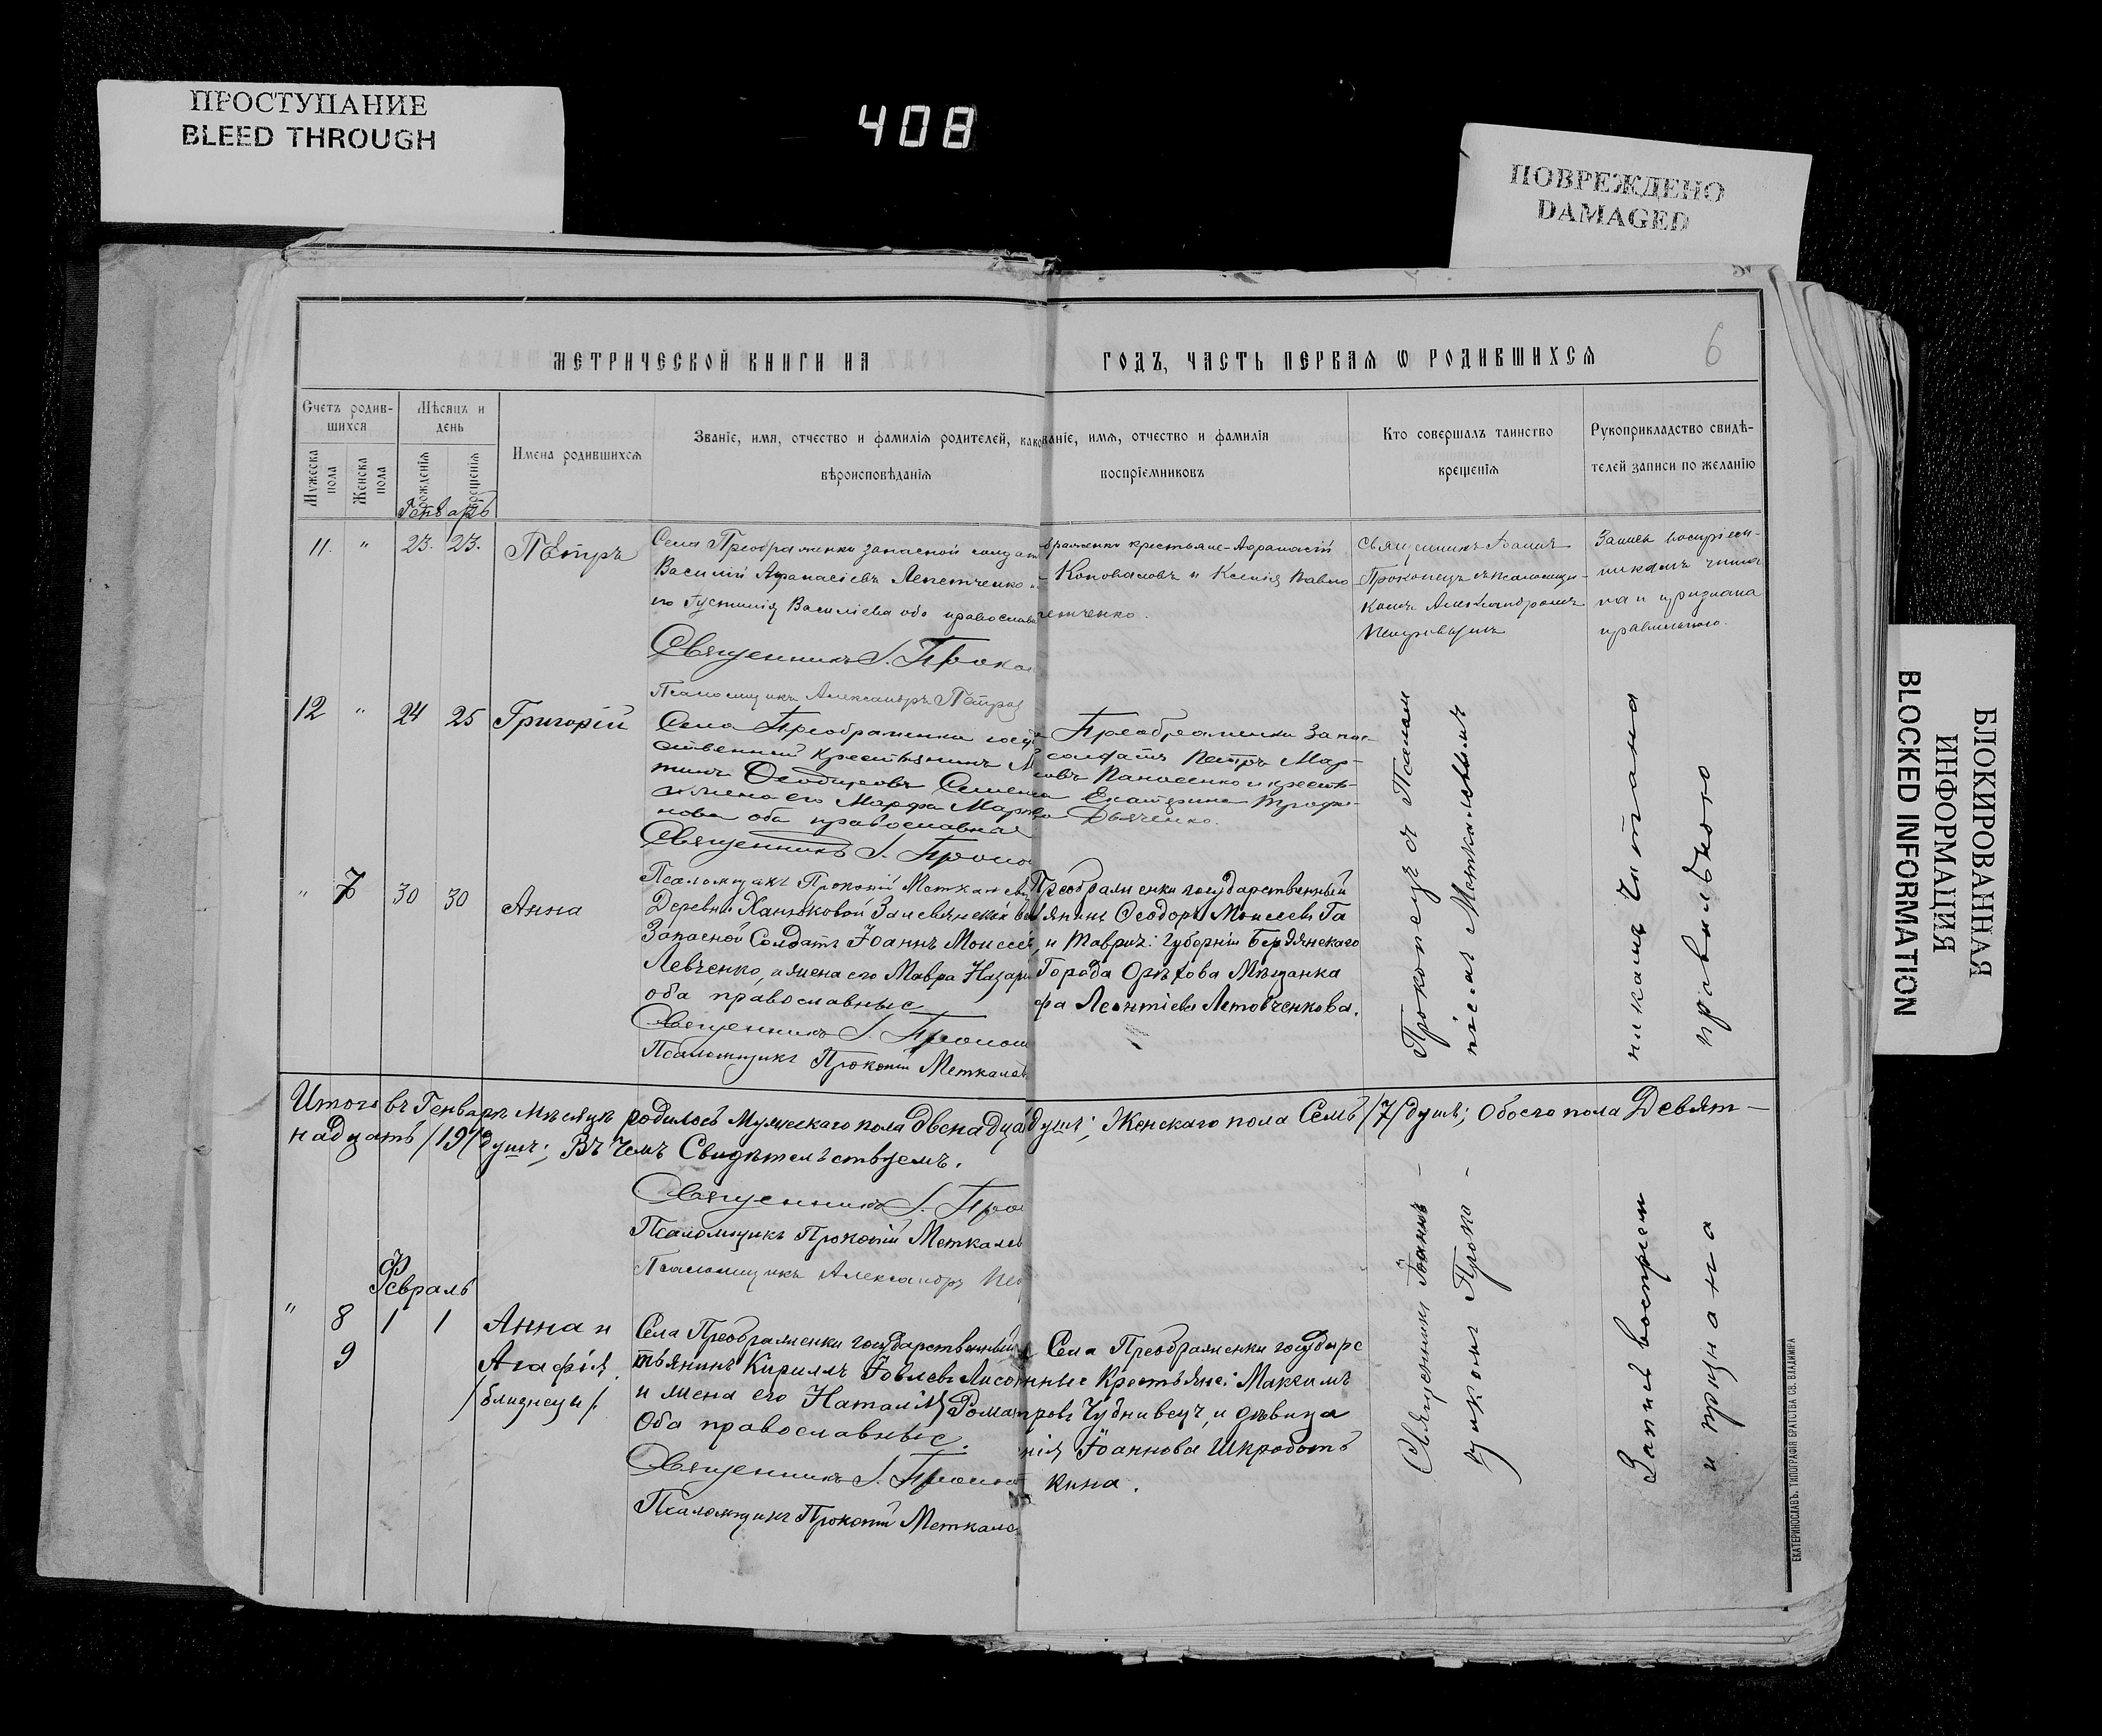 ПРОСТУПАНИЕ
BLEED THROUGH
408
ПОВРЕЖДЕНО
DAMAGED
БЛОКИРОВАННАЯ
ИНФОРМАЦИЯ
BLOCKED INFORMATION
6
МЕТРИЧЕСКОЙ КНИГИ НА ГОДЪ, ЧАСТЬ ПЕРВАЯ Ѡ РОДИВШИХСЯ
Счетъ родив-
шихся
Мужеска
пола
Женска
пола
Мѣсяцъ и
день
рожденія
крещенія
Имена родившихся
Званіе, имя, отчество и фамилія родителей, како
вѣроисповѣданія
ваніе, имя, отчество и фамилія
воспріемниковъ
Кто совершалъ таинство
крещенія
Рукоприкладство свидѣ-
телей записи по желанію
Генварь
11. " 23. 23. Пётръ
Села Преображенки запасной солдат
Василій Афанасіевъ Лепетченко
его Іустинія Васильева оба православ
Священникъ І. Проко
Псаломщикъ Александръ Петров
браженки крестьяне Афанасій
Коноваловъ и Ксенія Павло
етченко.
Священникъ Іоаннъ
Прокопецъ съ псаломщи-
комъ Александромъ
Записъ воспріем-
никамъ чита
на и признана
правильною.
12 " 24 25 Григорій
Села Преображенки госуд
ственный крестьянинъ М
тинъ Ѳеодоровъ Семен
жена его Марфа Марко
нова оба православные
Священникъ І. Проко
Псаломщикъ Прокопій Меткалев
Преображенки запас-
солдатъ Петръ Мар-
ковъ Панасенко и крестья-
Екатерина Трофи-
Дьяченко.
" 7 30 30 Анна
Деревни Ханжковой Зачевянской во
Запасной Солдатъ Іоаннъ Моисее
Левченко, и жена его Мавра Назар
оба православные
Священникъ І. Прокоп
Псаломщикъ Прокопій Меткалев
Преображенки государственный
янинъ Ѳеодоръ Моисеевъ Га
и Таврич: Губерніи Бердянскаго
Города Орѣхова Мѣщанка
фа Леонтіева Летовченкова.
Прокопецъ съ Псалом
піемъ Меткалевымъ
никамъ читана
правильною
Итого въ Генварѣ мѣсяцѣ родилось Мужескаго пола двенадца душъ; Женскаго пола Семь /7/ душъ; Обоего пола Девят-
надцать /19/ душъ; Въ чемъ Свидѣтельствуемъ.
Священникъ І. Про
Псаломщикъ Прокопій Меткалев
Псаломщикъ Александръ Пе
Февраль
" 8 1 1 Анна и
9 Агафія.
/близнецы/.
Села Преображенки государственный
тьянинъ Кириллъ Іовлевъ Лисо
и жена его Наталія Роман
Оба православные.
Священникъ І. Прокоп
Псаломщикъ Прокопій Меткале
Села Преображенки государс
нные Крестьяне: Максимъ
тровъ Чуднивецъ, и дѣвица
нія Іоаннова Шкробот
кина.
Священникъ Іоаннъ
щикомъ Проко -
Запись воспріем
и признана
ЕКАТЕРИНОСЛАВЪ. ТИПОГРАФІЯ БРАТСТВА СВ. ВЛАДИМІРА